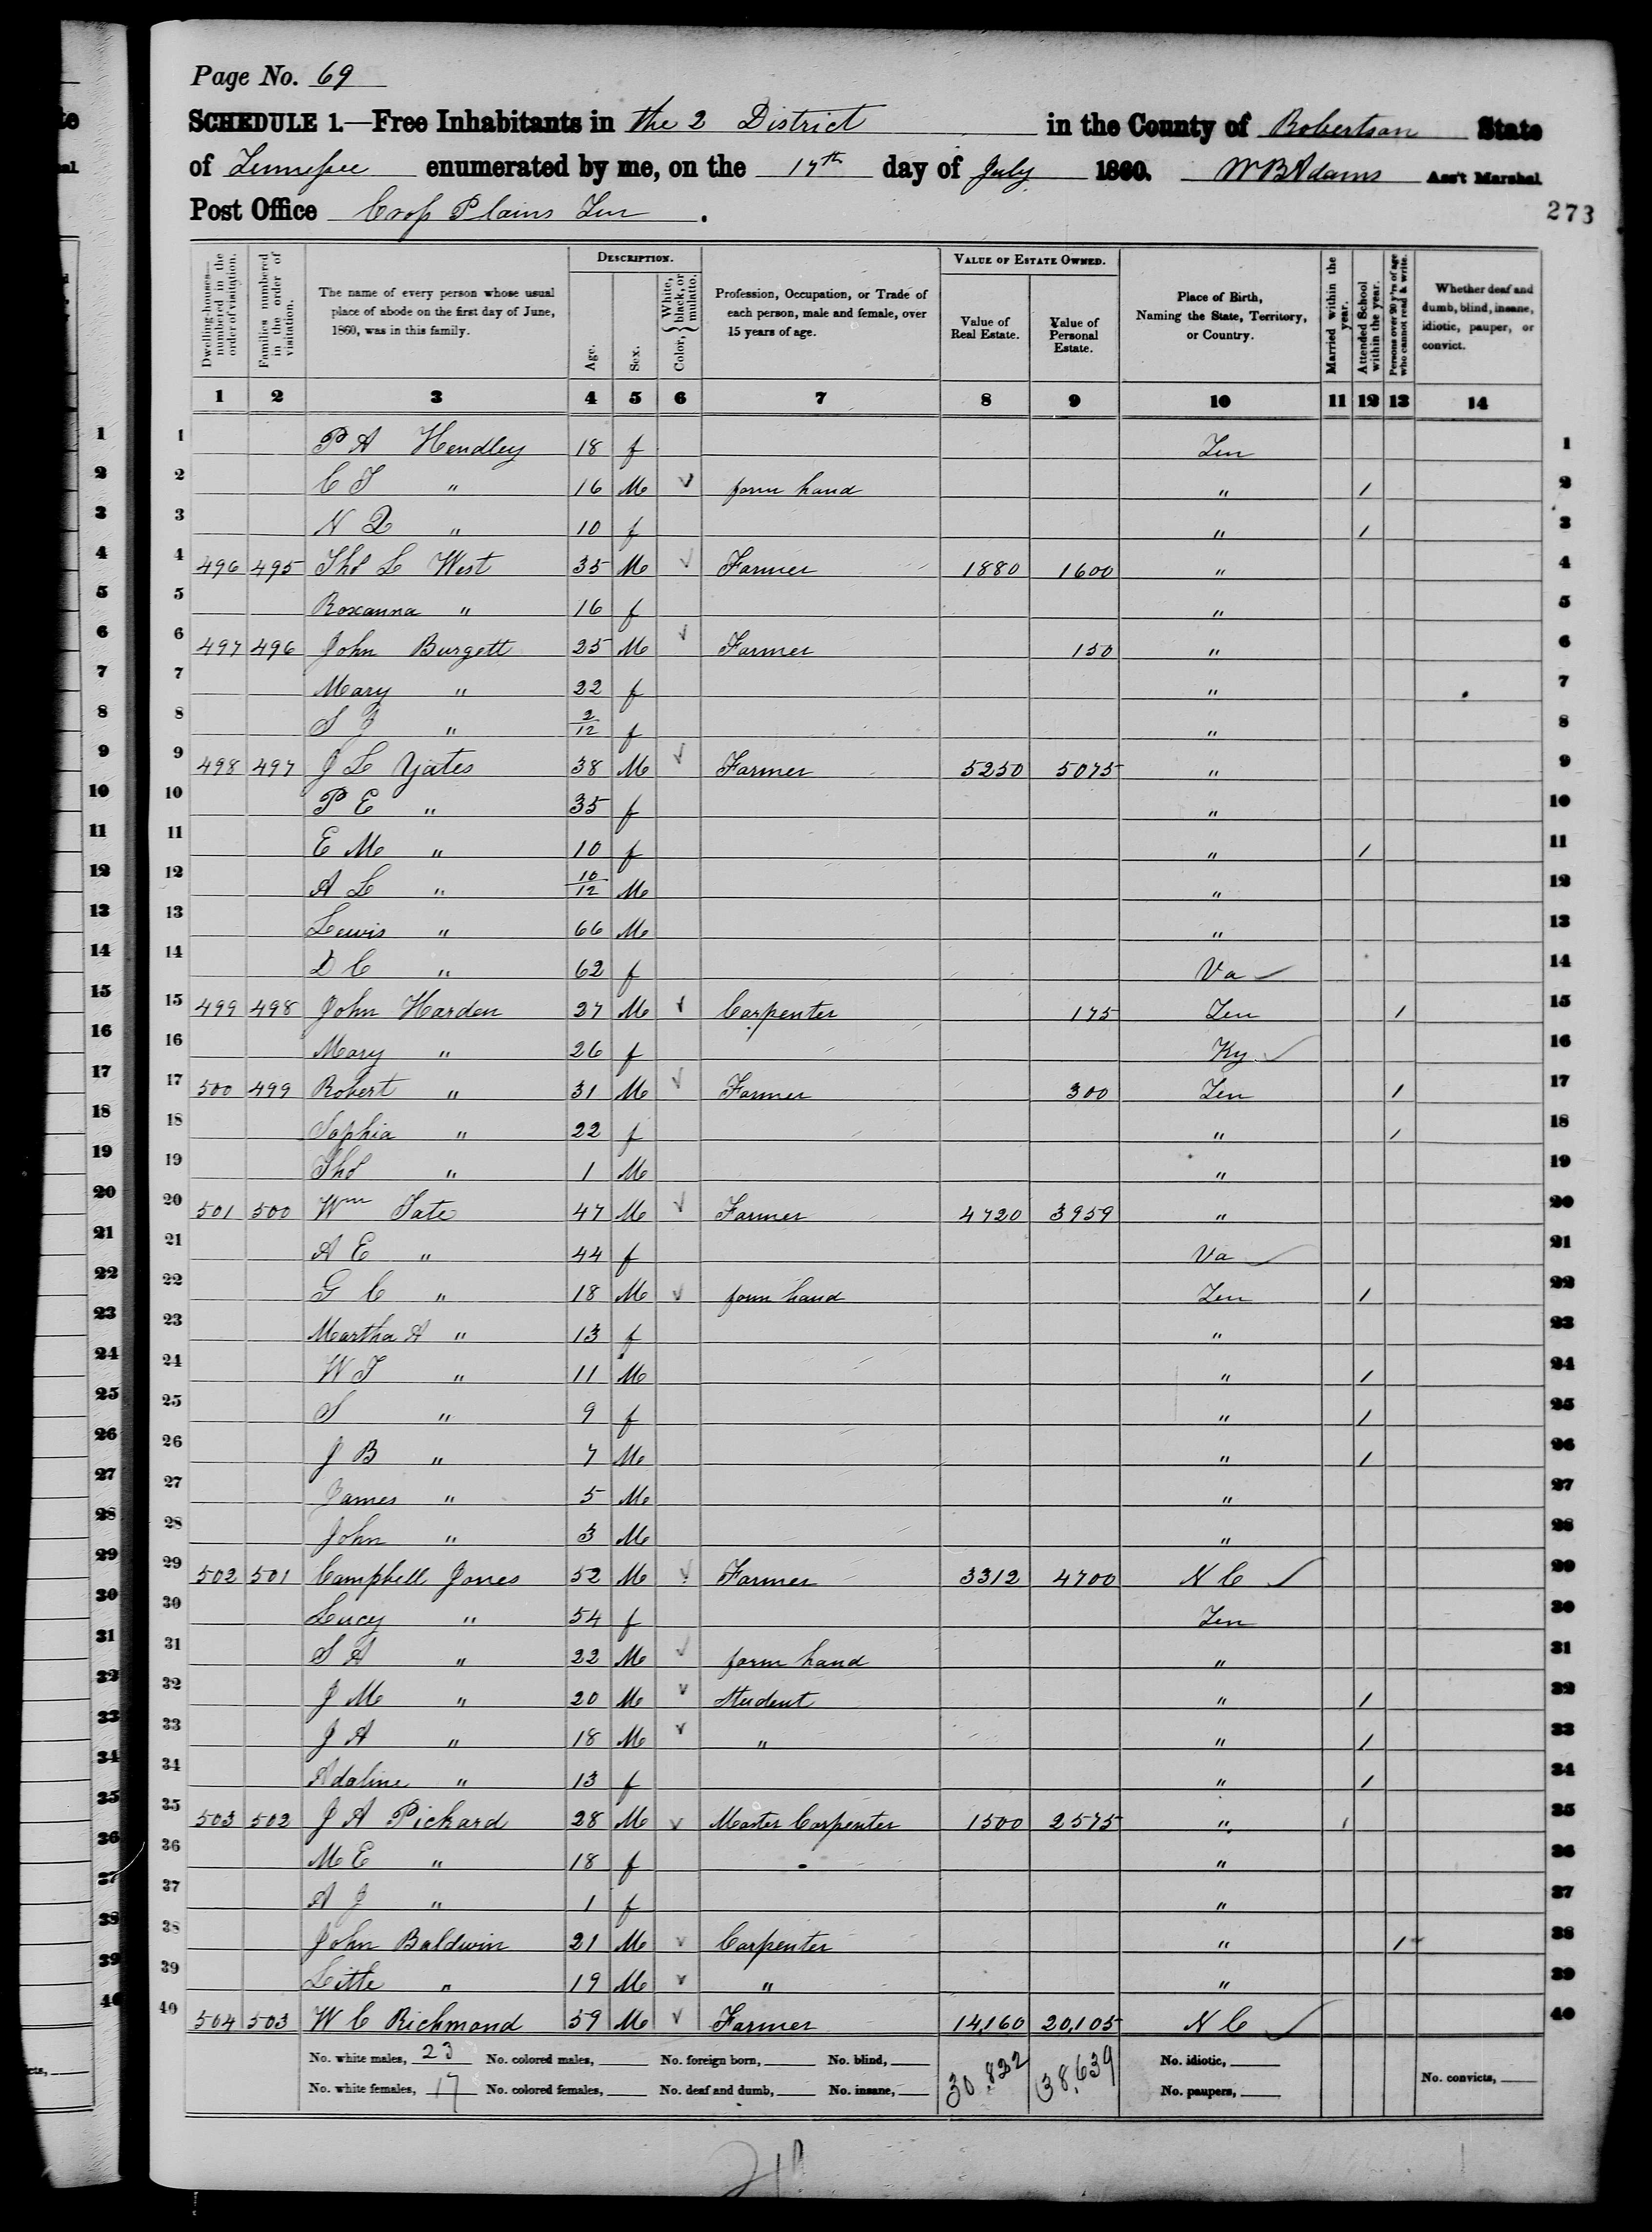 Page No. 69
SCHEDULE 1.—Free Inhabitants in the 2 District in the County of Robertson State
of Tennessee enumerated by me, on the 17th day of July 1860. W B Adams Ass't Marshal
Post Office Cross Plains Ten .
273
Dwelling-houses—numbered in the order of visitation. Families numbered in the order of visitation. The name of every person whose usual place of abode on the first day of June, 1860, was in this family. DESCRIPTION. Age. Sex. Color, { White, black, or mulatto. Profession, Occupation, or Trade of each person, male and female, over 15 years of age. VALUE OF ESTATE OWNED. Value of Real Estate. Value of Personal Estate. Place of Birth, Naming the State, Territory, or Country. Married within the year. Attended School within the year. Persons over 20 y'rs of age who cannot read & write. Whether deaf and dumb, blind, insane, idiotic, pauper, or convict.
1 2 3 4 5 6 7 8 9 10 11 12 13 14
1 P A Hendley 18 f Ten 1
2 C T " 16 M farm hand " / 2
3 N Q " 10 f " / 3
4 496 495 Thos L West 35 M Farmer 1880 1600 " 4
5 Roxanna " 16 f " 5
6 497 496 John Burgett 25 M Farmer 150 " 6
7 Mary " 22 f " 7
8 S J " 2/12 f " 8
9 498 497 J L Yates 38 M Farmer 5250 5075 " 9
10 P E " 35 f " 10
11 E M " 10 f " / 11
12 A L " 10/12 M " 12
13 Lewis " 66 M " 13
14 D C " 62 f Va 14
15 499 498 John Harden 27 M Carpenter 175 Ten / 15
16 Mary " 26 f Ky 16
17 500 499 Robert " 31 M Farmer 300 Ten / 17
18 Sophia " 22 f " / 18
19 Thos " 1 M " 19
20 501 500 Wm Tate 47 M Farmer 4720 3959 " 20
21 A E " 44 f Va 21
22 G C " 18 M farm hand Ten / 22
23 Martha A " 13 f " 23
24 W T " 11 M " / 24
25 S " 9 f " / 25
26 J B " 7 M " / 26
27 James " 5 M " 27
28 John " 3 M " 28
29 502 501 Campbell Jones 52 M Farmer 3312 4700 N C 29
30 Lucy " 54 f Ten 30
31 S A " 22 M farm hand " 31
32 J M " 20 M Student " / 32
33 J A " 18 M " " / 33
34 Adaline " 13 f " / 34
35 503 502 J A Pickard 28 M Master Carpenter 1500 2575 " / 35
36 M E " 18 f " 36
37 A J " 1 f " 37
38 John Baldwin 21 M Carpenter " / 38
39 " 19 M " " 39
40 504 503 W C Richmond 59 M Farmer 14,160 20,105 N C 40
No. white males, 23 No. colored males, No. foreign born, No. blind, 30,822 38,639 No. idiotic,
No. white females, 17 No. colored females, No. deaf and dumb, No. insane, No. paupers, No. convicts,